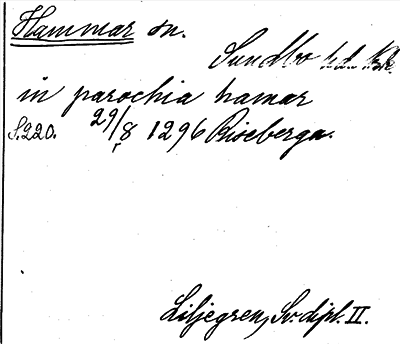 Hammar sn.
Sundbo hd.
in parochia hamar
S.220. 29/8 1296 Riseberga.
Liljegren, Sv. dipl. II.